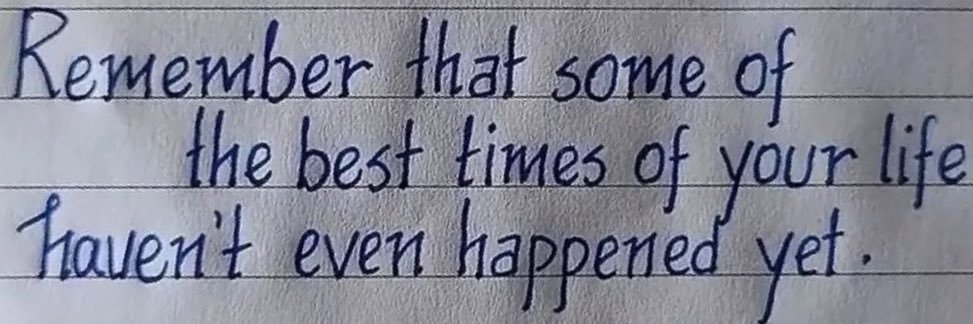 Remember that some of
the best times of your life
haven't even happened yet.